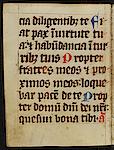 cia diligentibꝫ te F
iat pax ĩ uirtute tu
a ⁊ habūdancia ĩ tur
ribꝫ tuis Propter
fratres meos ⁊ p
ximos meos: loque
bar pacē de te Prop
ter domū dn̄i dei nr̄i:
quesiui bona tibi